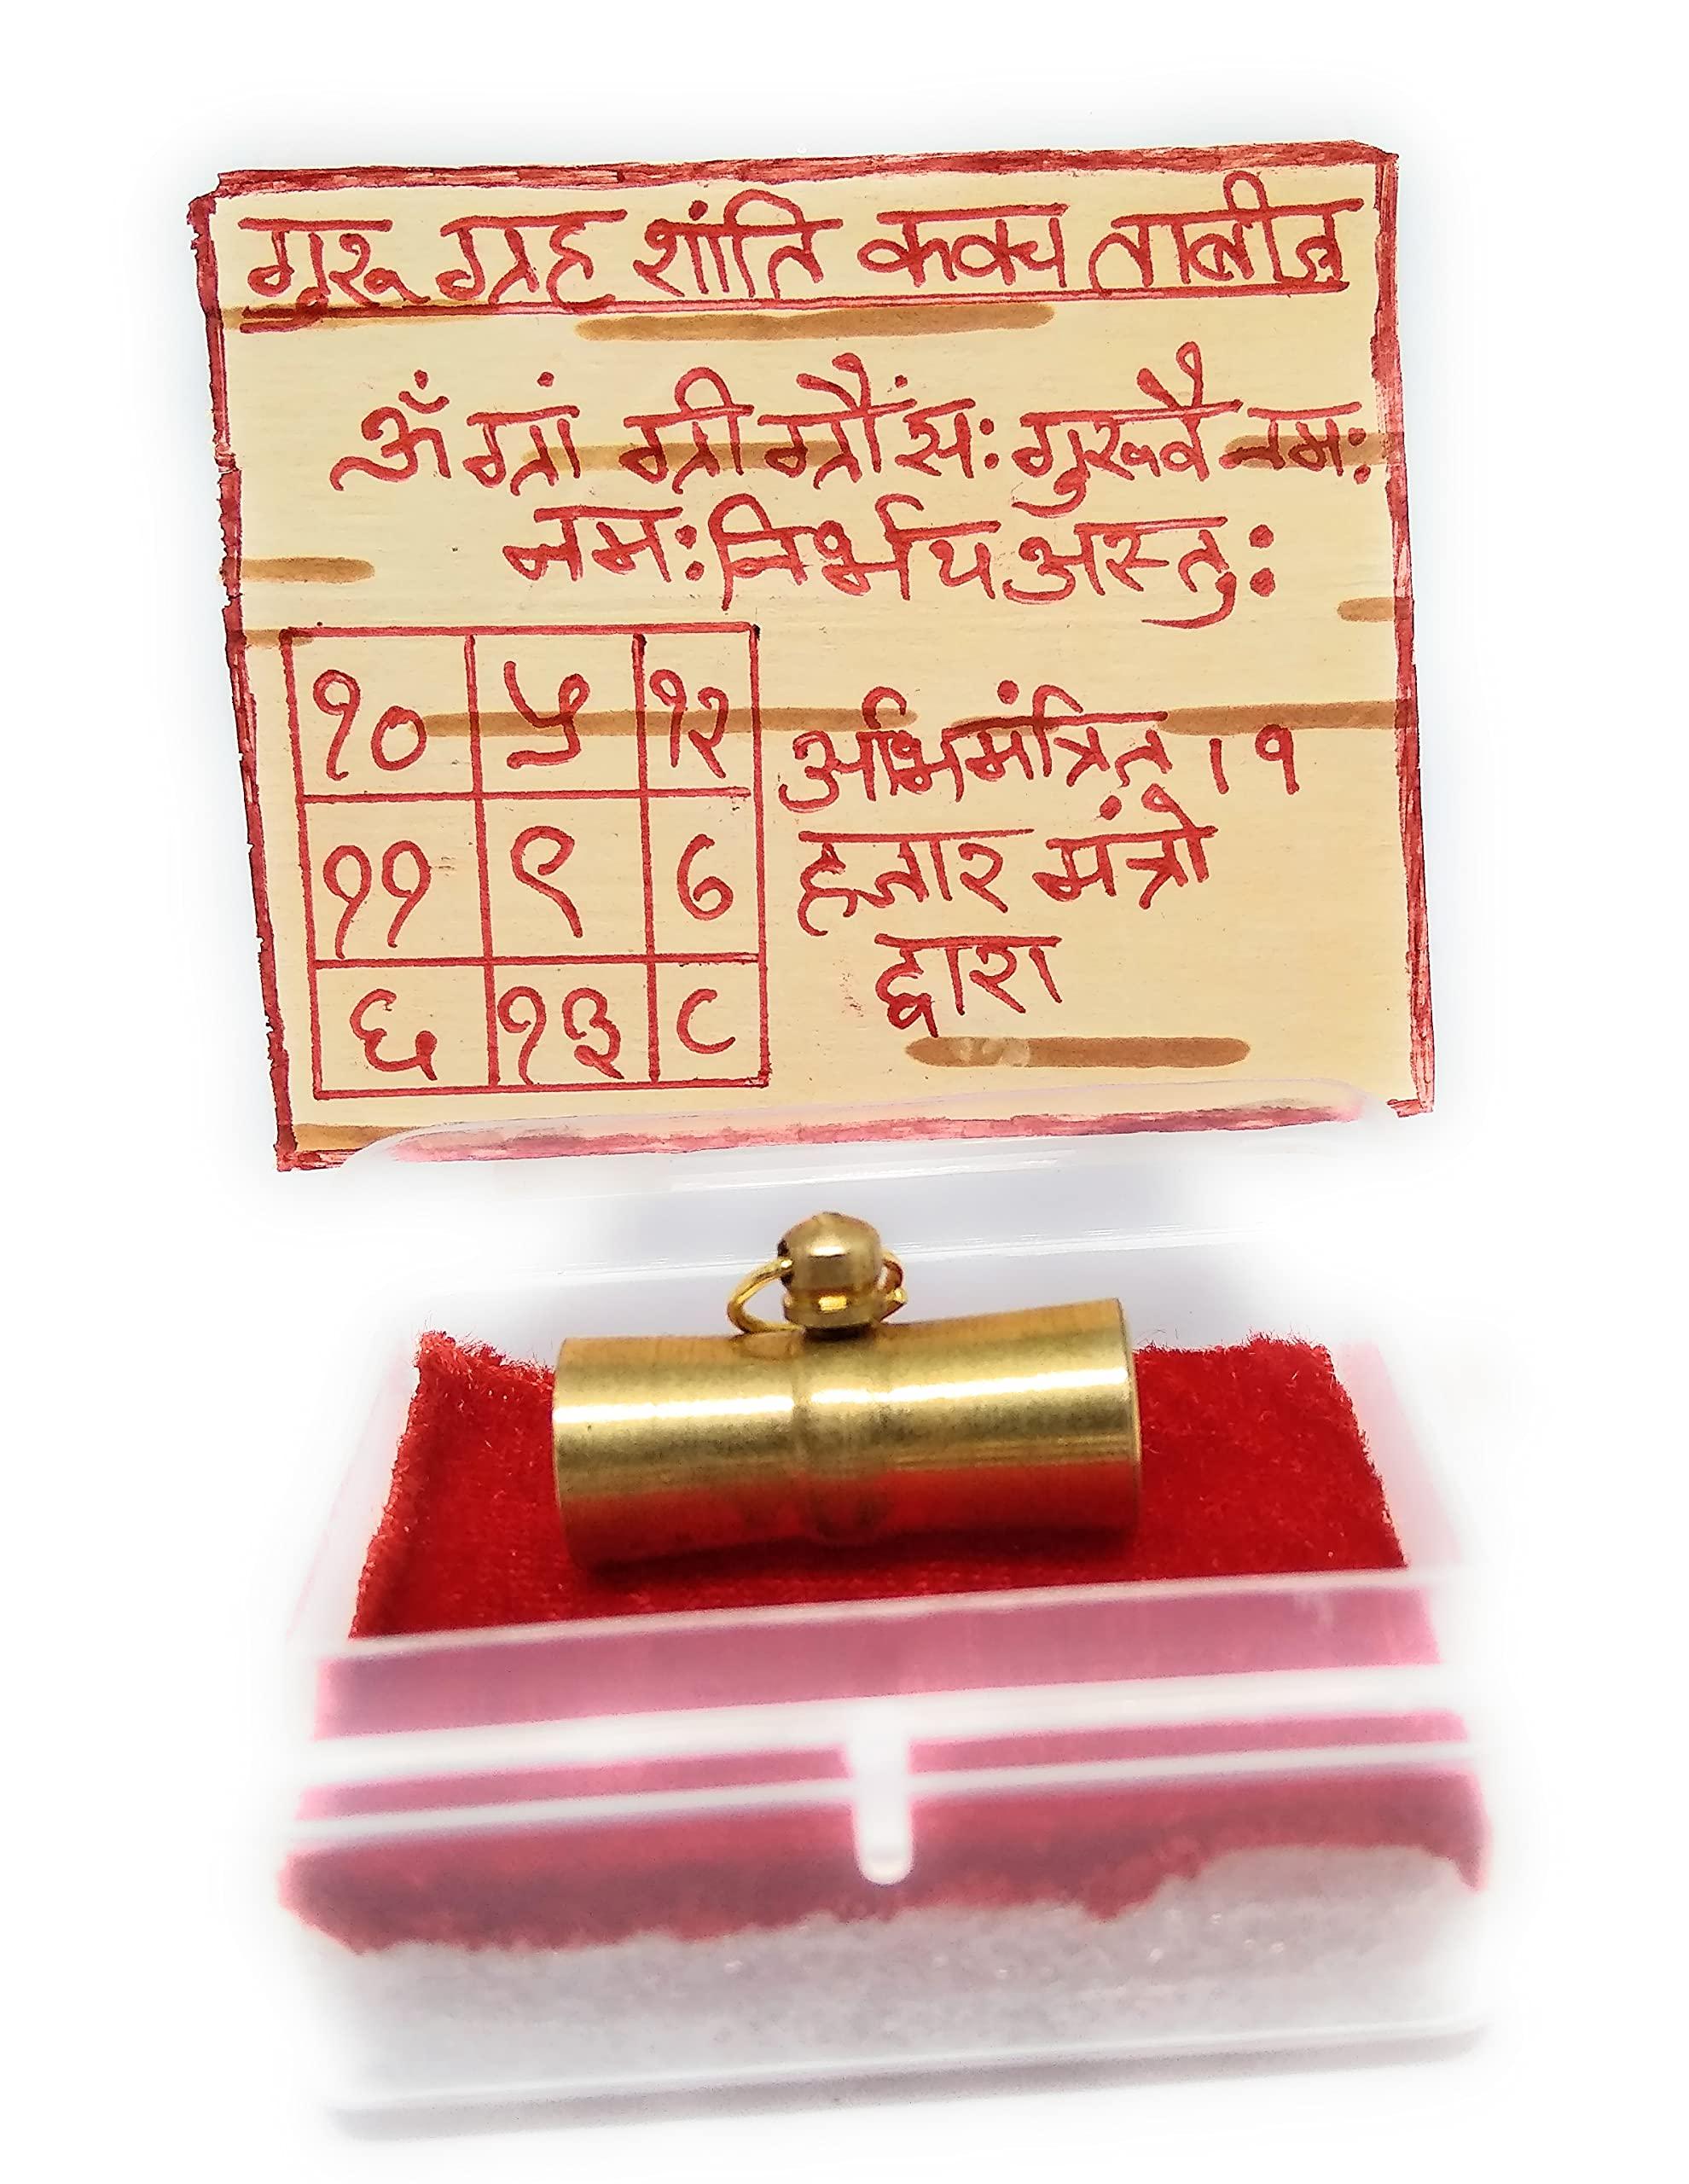 गुरू ग्रह शांति कवच ताबीज
ॐ ग्रां ग्रीं ग्रौं सः गुरूवै नमः
नमः निर्भय अस्तुः
१० ५ १२
११ ९ ७
६ १३ ८
अभिमंत्रित । १
हजार मंत्रो
द्वारा